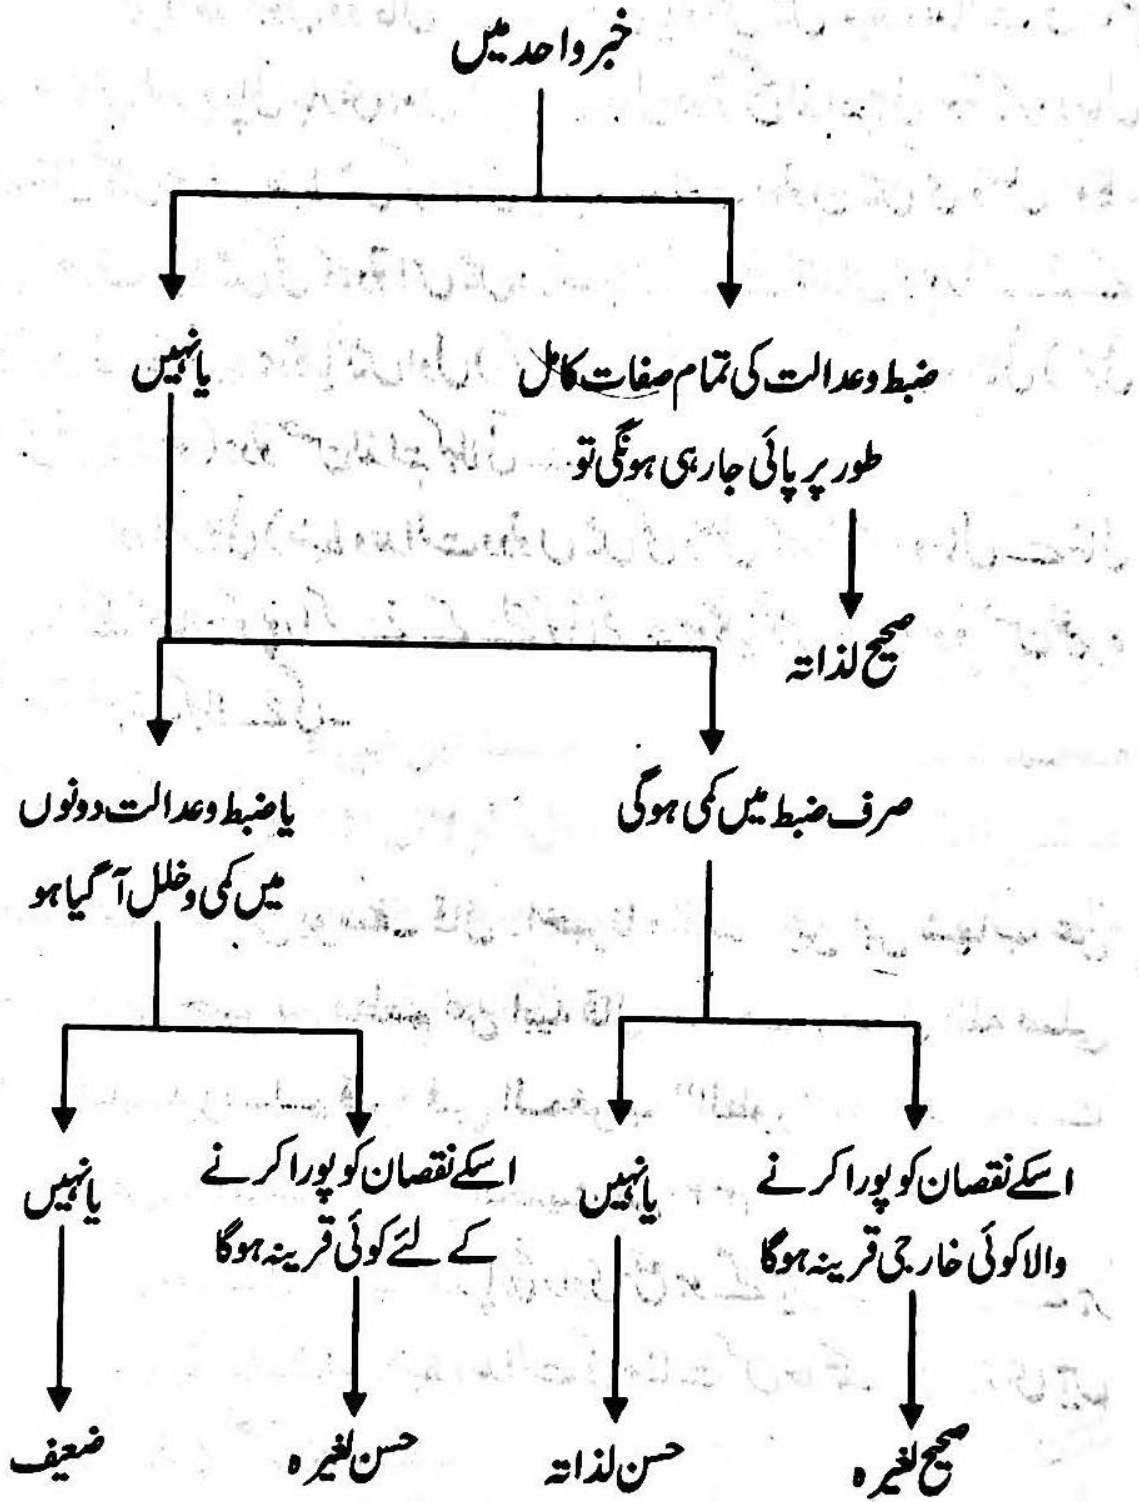 خبر واحد میں
ضبط و عدالت کی تمام صفات کامل
طور پر پائی جارہی ہونگی تو
یا نہیں
صحیح لذاتہ
صرف ضبط میں کمی ہوگی
یا ضبط و عدالت دونوں
میں کمی و خلل آگیا ہو
اسکے نقصان کو پورا کرنے
والا کوئی خارجی قرینہ ہوگا
یا نہیں
اسکے نقصان کو پورا کرنے
کے لئے کوئی قرینہ ہوگا
یا نہیں
صحیح لغیرہ
حسن لذاتہ
حسن لغیرہ
ضعیف